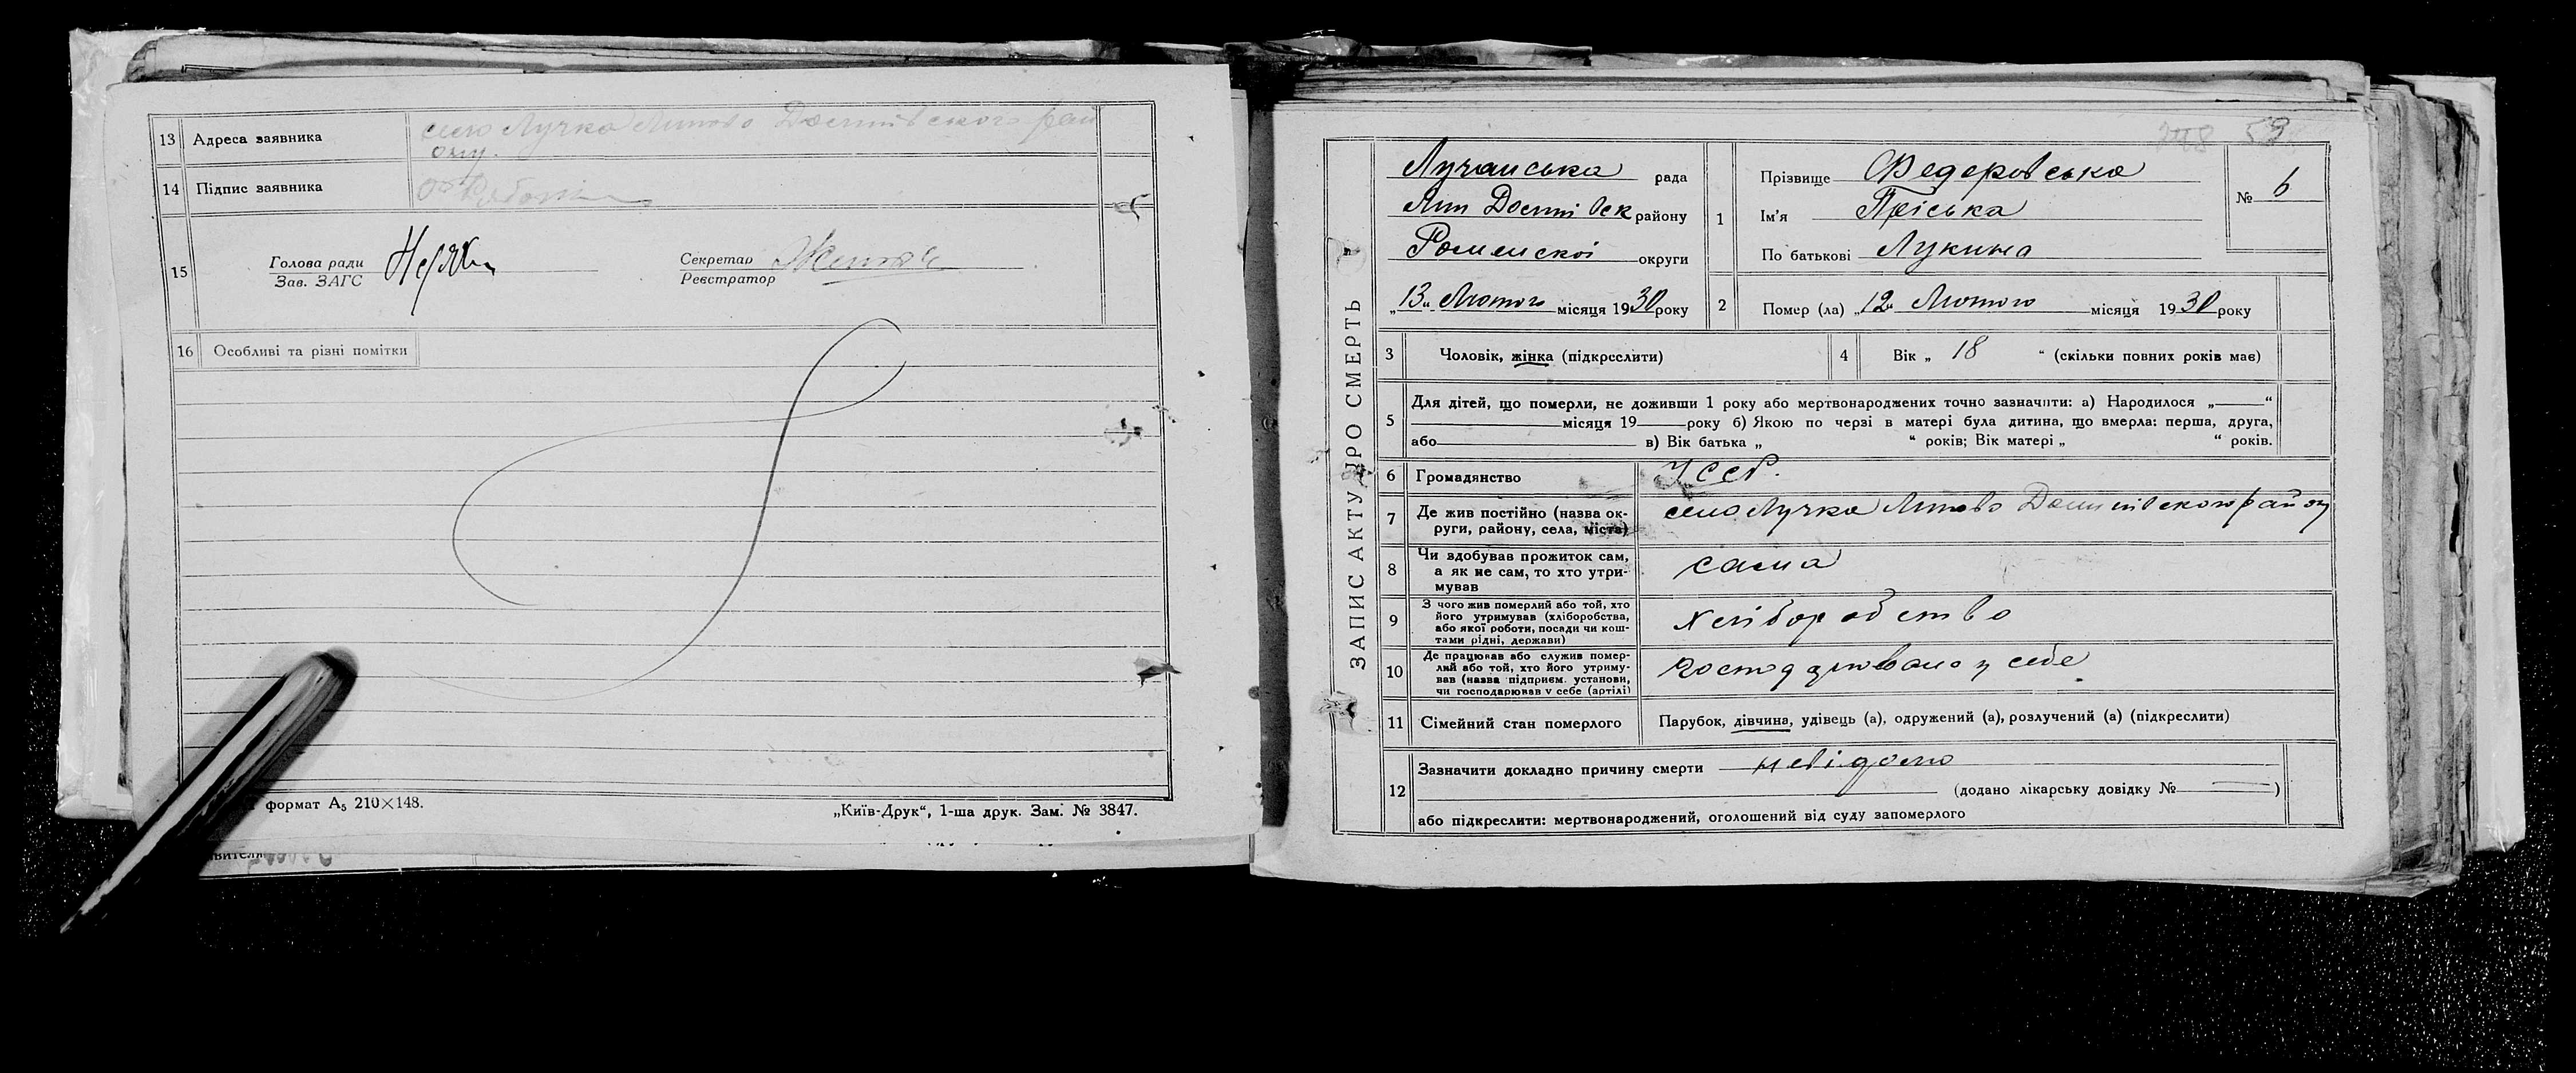 13 Адреса заявника село Лучка Липово Долинівского рай
ону.
14 Підпис заявника
15 Голова ради Секретар
Зав. ЗАГС Реєстратор
16 Особливі та різні помітки
формат А5 210×148.
„Київ-Друк“, 1-ша друк. Зам. № 3847.
ЗАПИС АКТУ ПРО СМЕРТЬ
53
Лучанська рада
Лип Долинівск району
Роменскої округи
„13“ Лютого місяця 1930 року
1 Прізвище Федеровська
Ім’я Пріська
По батькові Лукина
№ 6
2 Помер (ла) „12“ Лютого місяця 1930 року
3 Чоловік, жінка (підкреслити)
4 Вік „ 18 “ (скільки повних років має)
5 Для дітей, що померли, не доживши 1 року або мертвонароджених точно зазначити: а) Народилося „ “
місяця 19 року б) Якою по черзі в матері була дитина, що вмерла: перша, друга,
або в) Вік батька „ “ років; Вік матері „ “ років.
6 Громадянство УССР.
7 Де жив постійно (назва ок-
руги, району, села, міста) село Лучка Липово Долинівского району
8 Чи здобував прожиток сам,
а як не сам, то хто утри-
мував сама
9 З чого жив померлий або той, хто
його утримував (хліборобства,
або якої роботи, посади чи кош-
тами рідні, держави) хліборобство
10 Де працював або служив помер-
лий або той, хто його утриму-
вав (назва підприєм. установи,
чи господарював у себе (артілі) господарювала у себе
11 Сімейний стан померлого Парубок, дівчина, удівець (а), одружений (а), розлучений (а) (підкреслити)
12 Зазначити докладно причину смерти невідомо
(додано лікарську довідку № )
або підкреслити: мертвонароджений, оголошений від суду запомерлого